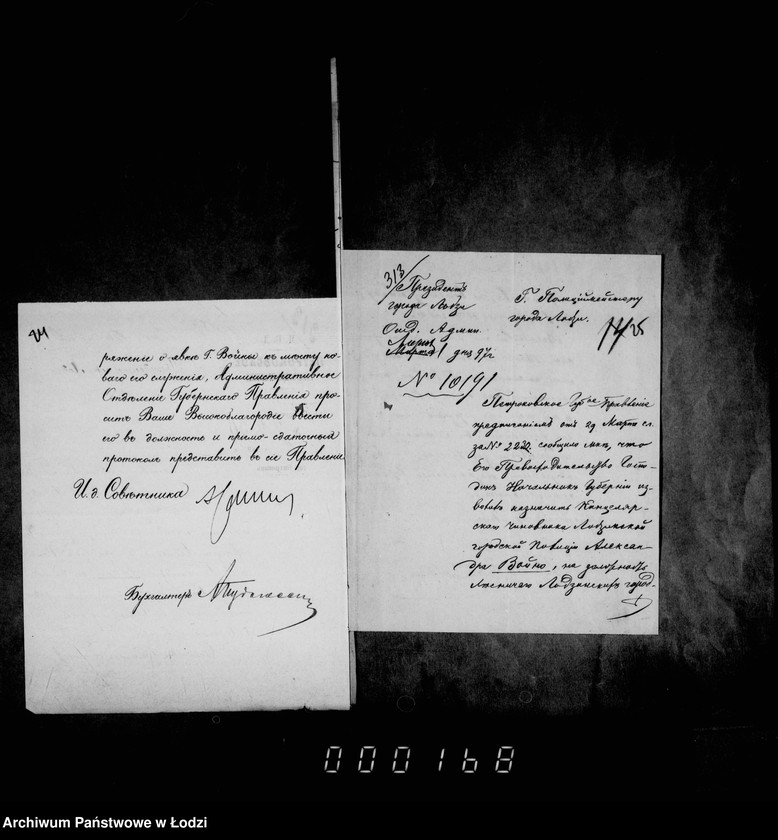 24
ряженіе о явкѣ Г. Войны къ мѣсту но-
ваго его служенія, Административное
Отдѣленіе Губернскаго Правленія про-
ситъ Ваше Высокоблагородіе ввести
его въ должность и пріемо-сдаточный
протоколъ представить въ сіе Правленіе
И. д. Совѣтника
Бухгалтеръ
313
Президентъ
города Лодзи
Отд. Админ.
Апрѣля
Марта 1 дня 97 г.
№ 10191
Г. Полиціймейстеру
города Лодзи.
25
Петроковское Губ-ное Правленіе
предписаніемъ отъ 29 Марта с.г.
за № сообщило мнѣ, что
Его Превосходительство Госпо-
динъ Начальникъ Губерніи из-
волилъ назначить Канцеляр-
скаго чиновника Лодзинской
городской Полиціи Александ-
ра Войно, на должность
Лѣсничаго Лодзинскихъ город-
000168
Archiwum Państwowe w Łodzi